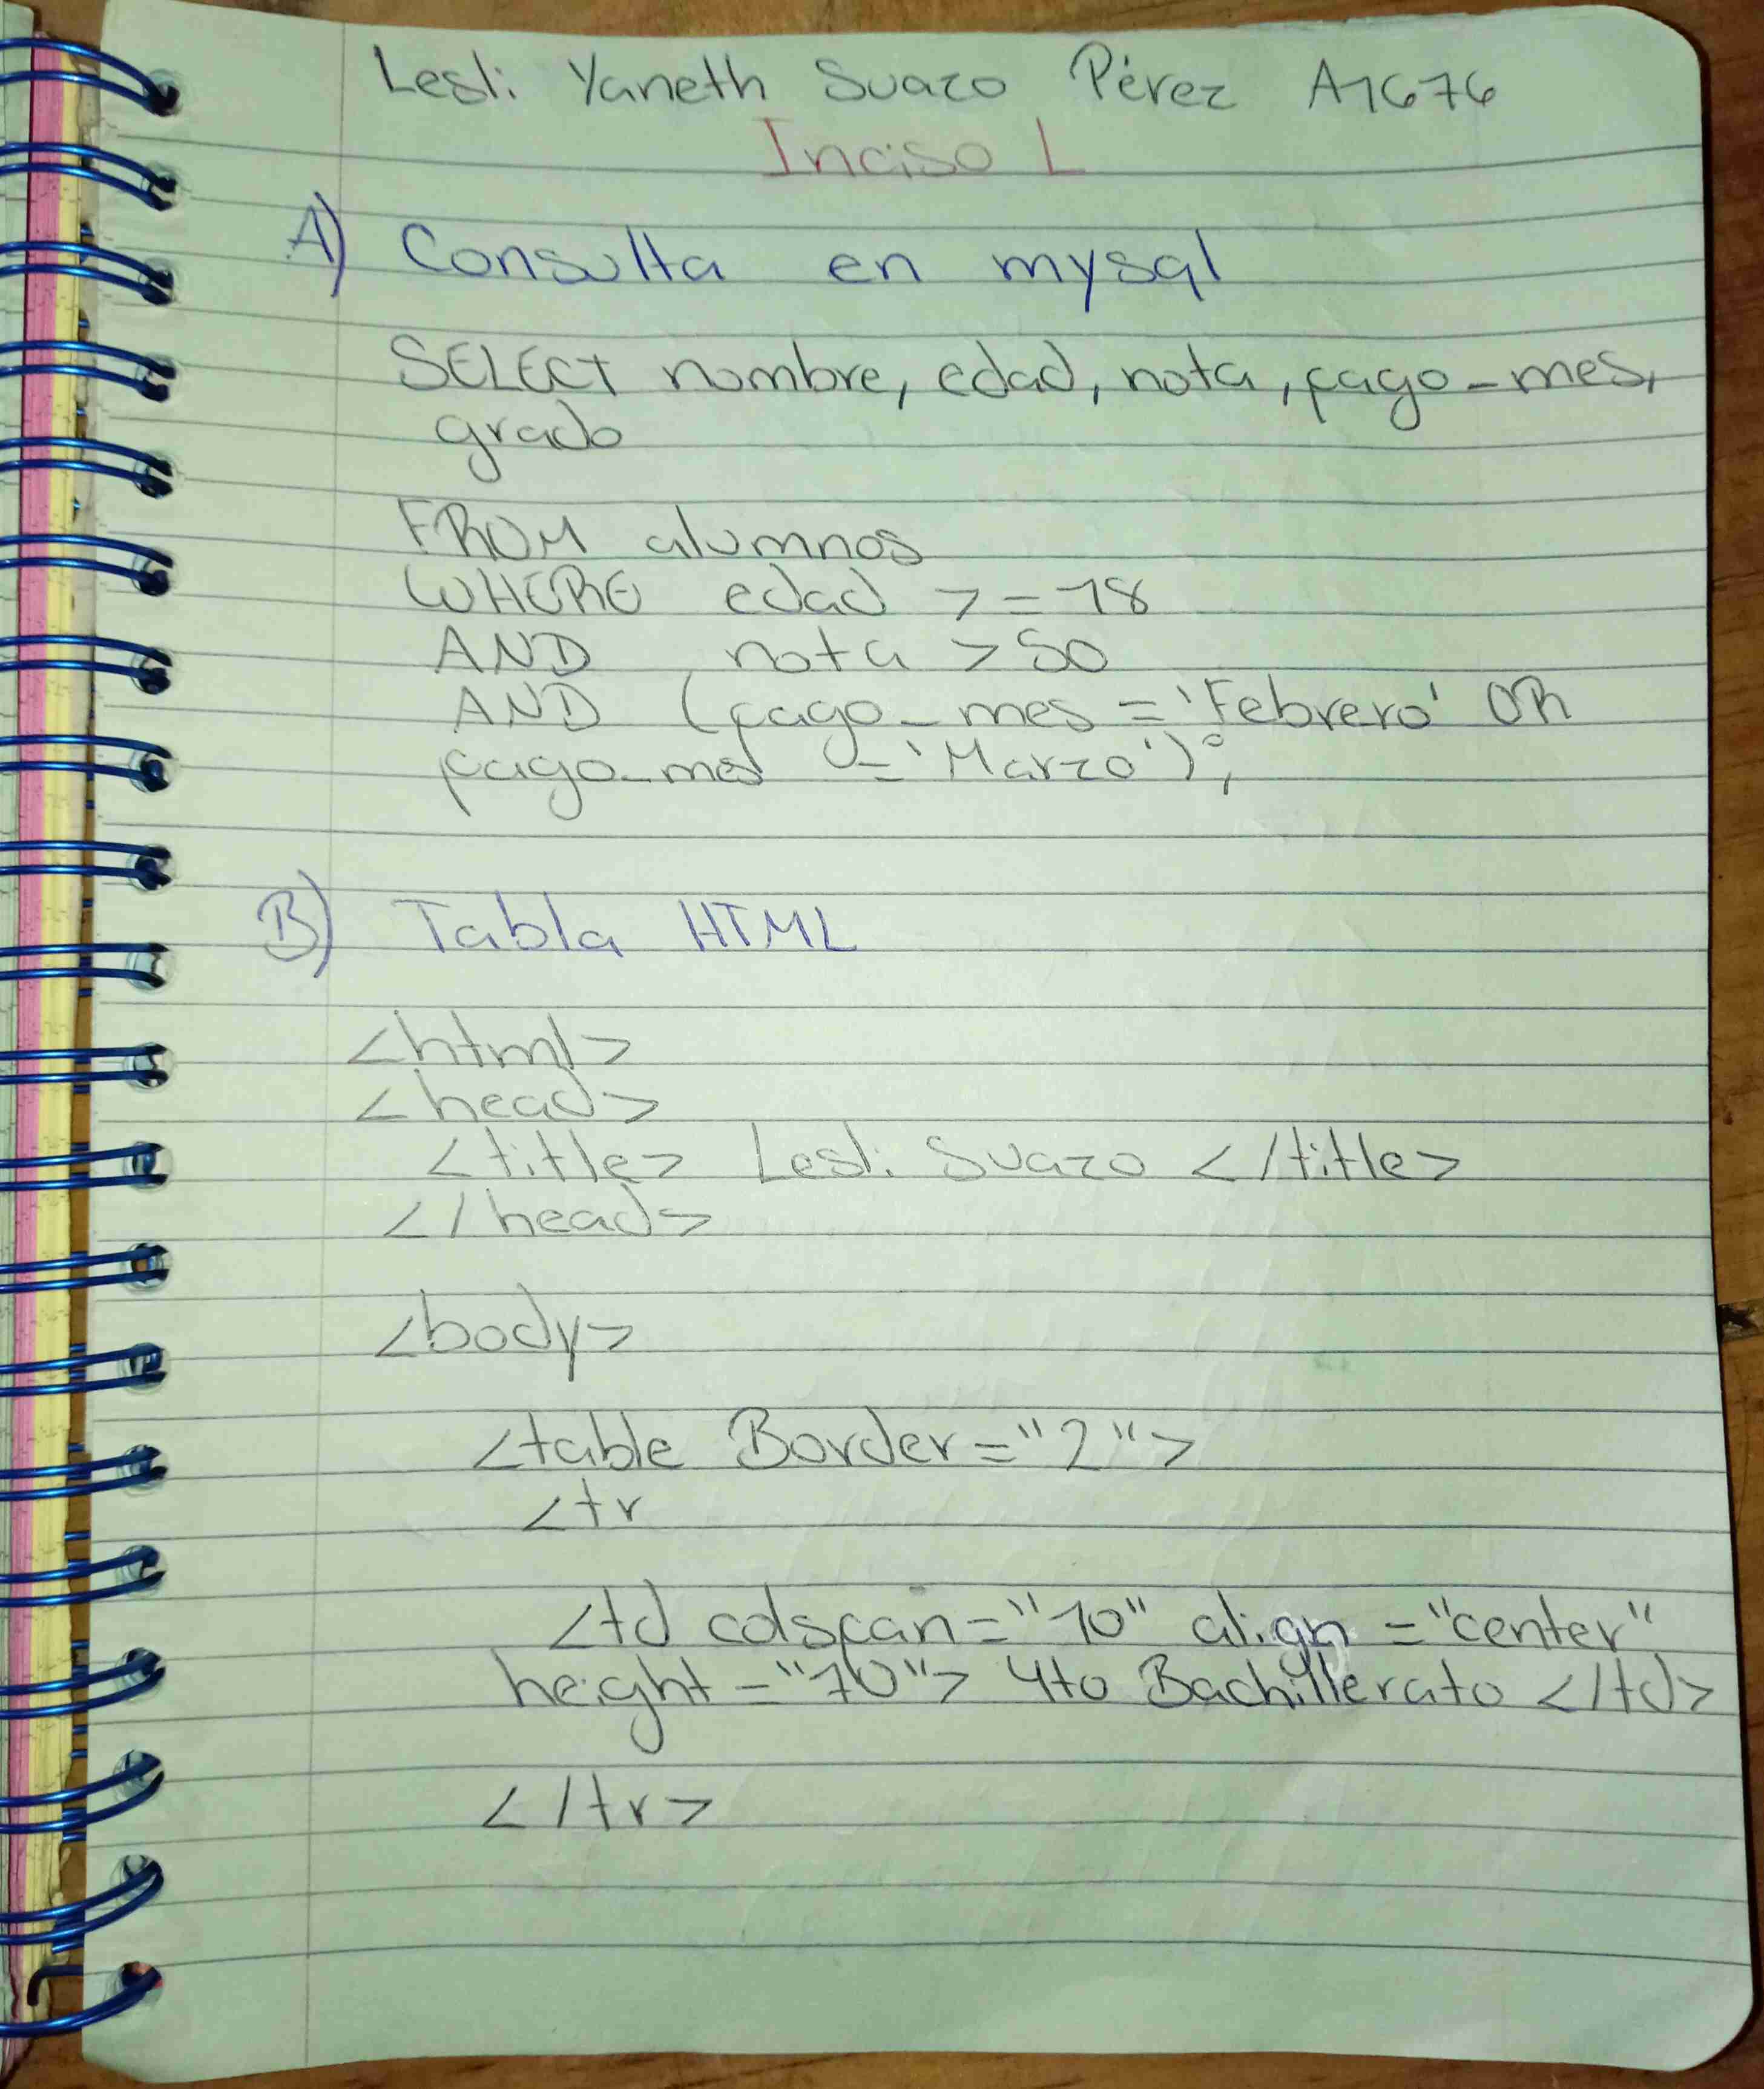 Lesli Yaneth Suazo Pérez A1676
Inciso L
A) Consulta en mysql
SELECT nombre, edad, nota, pago_mes,
grado
FROM alumnos
WHERE edad >=18
AND nota >50
AND (pago_mes = 'Febrero' OR
pago_mes = 'Marzo');
B) Tabla HTML
<html>
<head>
<title> Lesli Suazo </title>
</head>
<body>
<table Border="2">
<tr
<td colspan="10" align="center"
height="70"> 4to Bachillerato </td>
</tr>